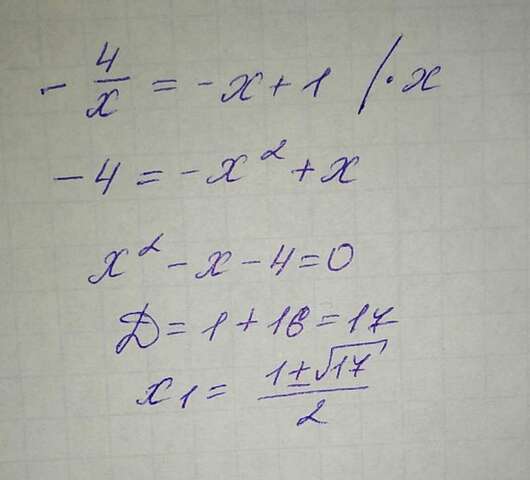 - 4/x = -x + 1 | · x
-4 = -x² + x
x² - x - 4 = 0
D = 1 + 16 = 17
x₁ = (1 ± √17)/2